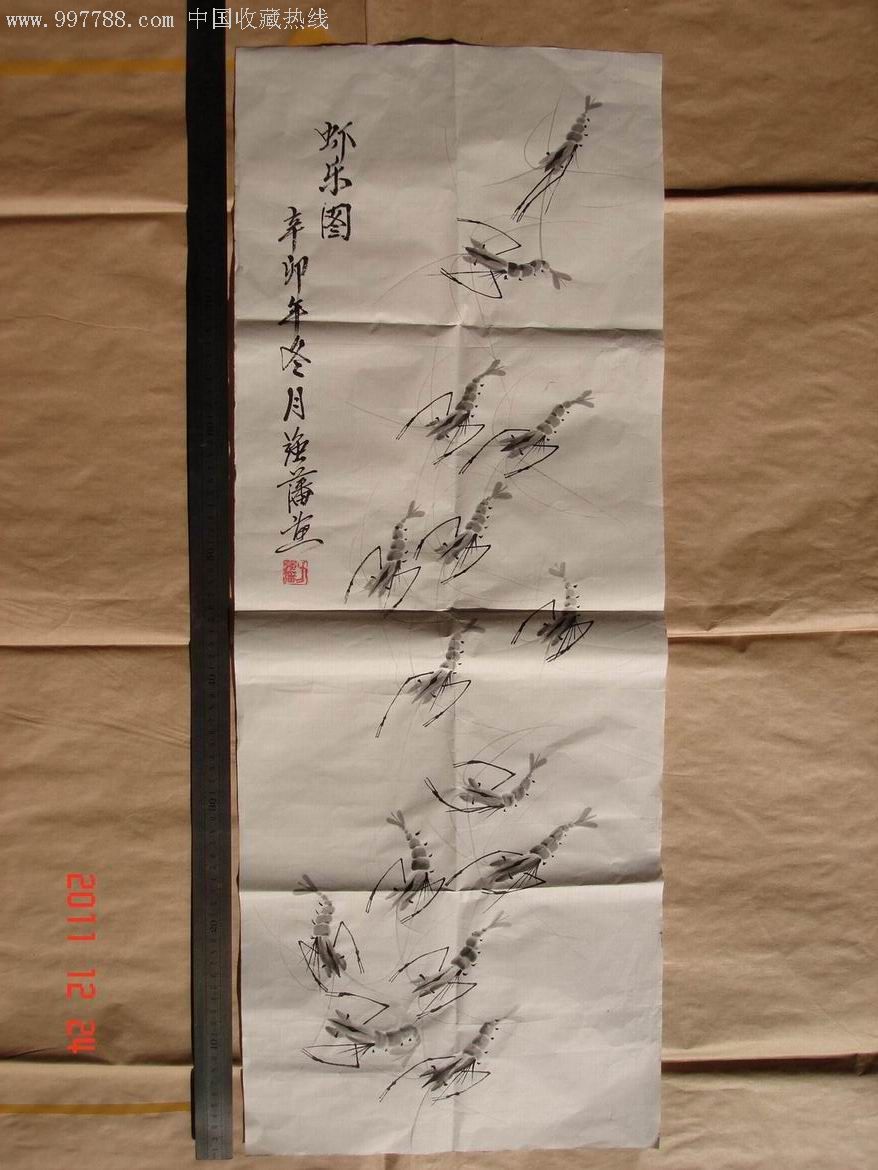 www.997788.com 中国收藏热线
虾乐图
辛卯年冬月强藩画
2011 12 24